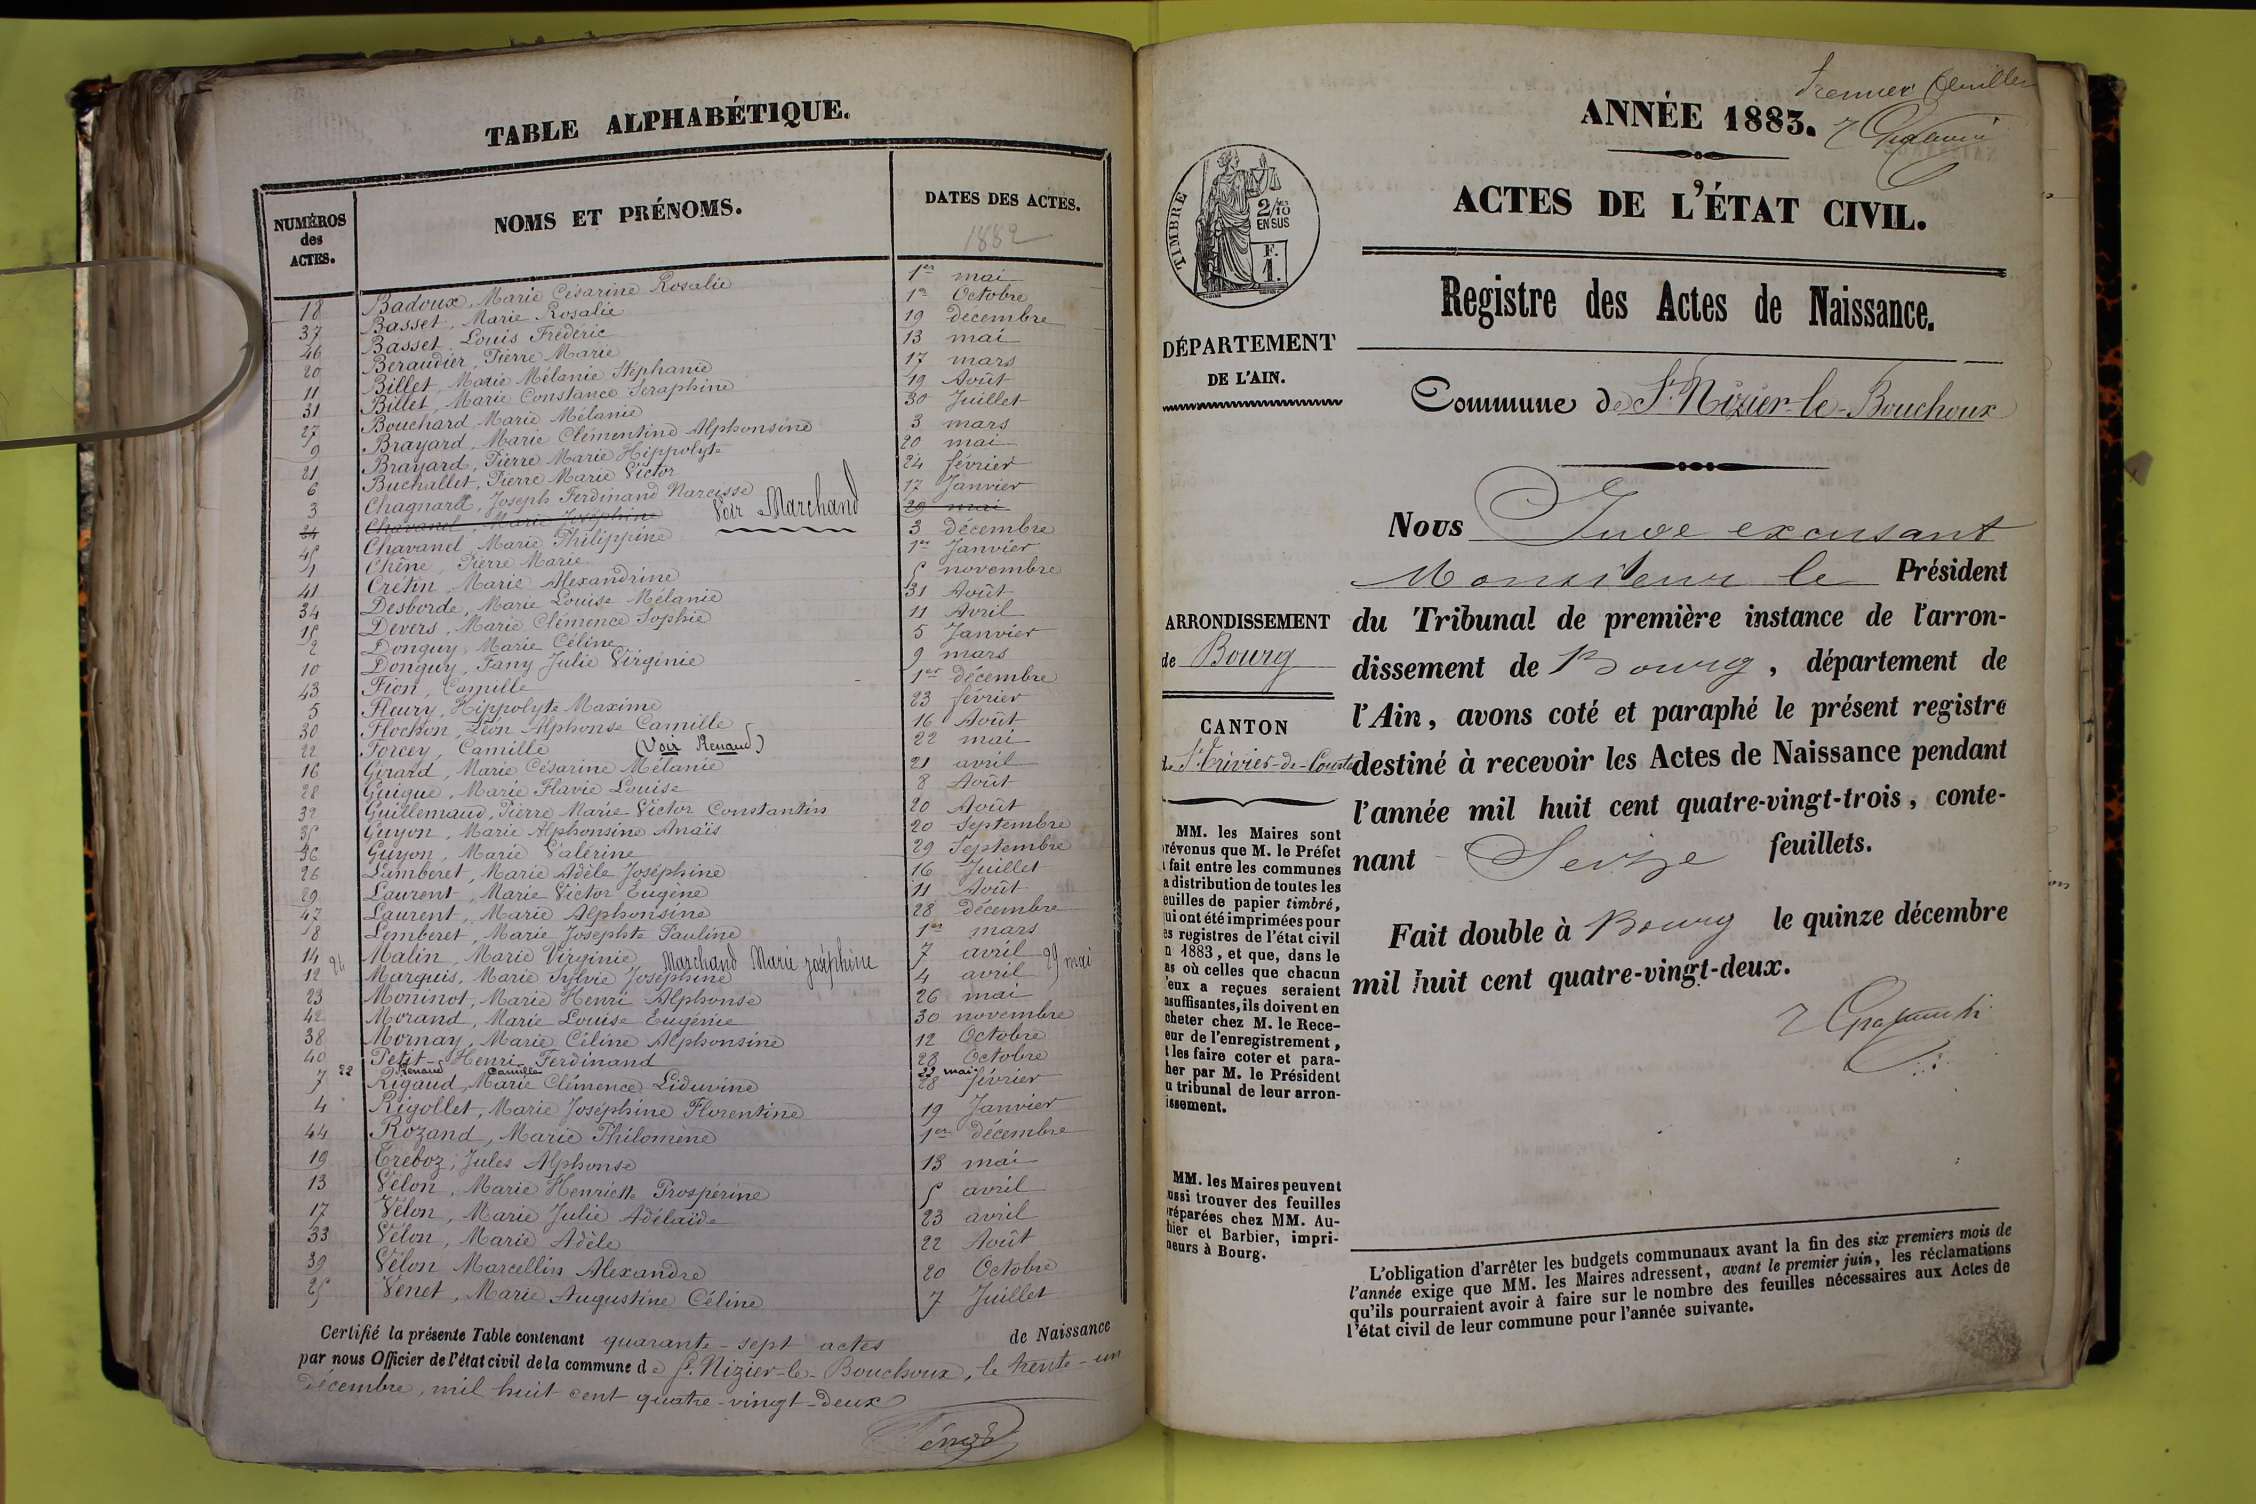 TABLE ALPHABÉTIQUE.
NUMÉROS des ACTES. NOMS ET PRÉNOMS. DATES DES ACTES.
1882
18 Badoux, Marie Césarine Rosalie 1er mai
37 Basset, Marie Rosalie 1er Octobre
46 Basset, Louis Frédéric 19 décembre
20 Beraudier, Pierre Marie 13 mai
11 Billet, Marie Mélanie Stéphanie 17 mars
31 Billet, Marie Constance Séraphine 19 Août
27 Bouchard Marie Mélanie 30 Juillet
9 Brayard, Marie Clémentine Alphonsine 3 mars
21 Brayard, Pierre Marie Hippolyte 20 mai
6 Buchallet, Pierre Marie Victor 24 février
3 Chagnard, Joseph Ferdinand Narcisse 17 Janvier
24 Chavanel, Marie Joséphine Voir Marchand 29 mai
45 Chavanel, Marie Philippine 3 Décembre
1 Chêne, Pierre Marie 1er Janvier
41 Crétin, Marie Alexandrine 5 novembre
34 Desborde, Marie Louise Mélanie 31 Août
15 Devers, Marie Clémence Sophie 11 Avril
2 Donguy, Marie Céline 5 Janvier
10 Donguy, Fany Julie Virginie 9 mars
43 Fion, Camille 1er décembre
5 Fleury, Hippolyte Maxime 23 février
30 Flochon, Léon Alphonse Camille 16 Août
22 Forcey, Camille (Voir Renaud) 22 mai
16 Girard, Marie Césarine Mélanie 21 avril
28 Guigue, Marie Flavie Louise 8 Août
32 Guillemaud, Pierre Marie Victor Constantin 20 Août
35 Guyon, Marie Alphonsine Anaïs 20 Septembre
36 Guyon, Marie Valérine 29 Septembre
26 Lamberet, Marie Adèle Joséphine 16 Juillet
29 Laurent, Marie Victor Eugène 11 Août
47 Laurent, Marie Alphonsine 28 décembre
8 Lemberet, Marie Josephte Pauline 1er mars
14 Malin, Marie Virginie 7 avril
24 Marchand Marie joséphine 29 mai
12 Marquis, Marie Sylvie Joséphine 4 avril
23 Moninot, Marie Henri Alphonse 26 mai
42 Morand, Marie Louise Eugénie 30 novembre
38 Mornay, Marie Céline Alphonsine 12 Octobre
40 Petit, Henri Ferdinand 28 Octobre
22 Renaud Camille 22 mai
7 Rigaud, Marie Clémence Liduvine 28 février
4 Rigollet, Marie Joséphine Florentine 19 Janvier
44 Rozand, Marie Philomène 1er décembre
19 Treboz, Jules Alphonse 13 mai
13 Vélon, Marie Henriette Prospérine 5 avril
17 Vélon, Marie Julie Adélaïde 23 avril
33 Vélon, Marie Adèle 22 Août
39 Vélon Marcellin Alexandre 20 Octobre
25 Venet, Marie Augustine Céline 7 Juillet
Certifié la présente Table contenant quarante-sept actes de Naissance
par nous Officier de l'état civil de la commune de St. Nizier-le-Bouchoux, le trente-un
décembre, mil huit cent quatre-vingt-deux
Premier feuillet
ANNÉE 1883.
ACTES DE L'ÉTAT CIVIL.
TIMBRE
2/10
EN SUS
F.
1.
Registre des Actes de Naissance.
DÉPARTEMENT
DE L'AIN.
Commune de St. Nizier-le-Bouchoux
Nous Juge excusant
Monsieur le Président
du Tribunal de première instance de l'arron-
dissement de Bourg, département de
l'Ain, avons coté et paraphé le présent registre
destiné à recevoir les Actes de Naissance pendant
l'année mil huit cent quatre-vingt-trois, conte-
nant Seize feuillets.
Fait double à Bourg le quinze décembre
mil huit cent quatre-vingt-deux.
ARRONDISSEMENT
de Bourg
CANTON
de St. Trivier-de-Courtes
MM. les Maires sont
révenus que M. le Préfet
fait entre les communes
a distribution de toutes les
euilles de papier timbré,
ui ont été imprimées pour
es registres de l'état civil
n 1883, et que, dans le
as où celles que chacun
'eux a reçues seraient
nsuffisantes, ils doivent en
cheter chez M. le Rece-
eur de l'enregistrement,
t les faire coter et para-
her par M. le Président
u tribunal de leur arron-
issement.
MM. les Maires peuvent
ussi trouver des feuilles
réparées chez MM. Au-
hier et Barbier, impri-
neurs à Bourg.
L'obligation d'arrêter les budgets communaux avant la fin des six premiers mois de
l'année exige que MM. les Maires adressent, avant le premier juin, les réclamations
qu'ils pourraient avoir à faire sur le nombre des feuilles nécessaires aux Actes de
l'état civil de leur commune pour l'année suivante.